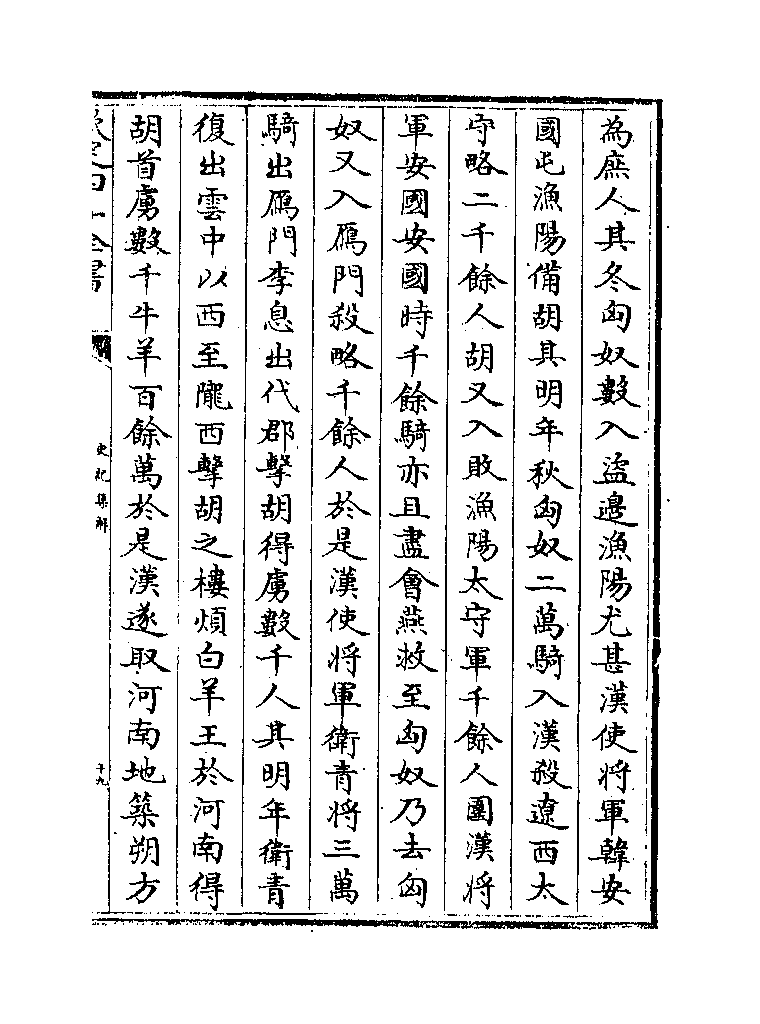 為庶人其冬匈奴數入盗邊漁陽尤甚漢使將軍韓安
國屯漁陽備胡其明年秋匈奴二萬騎入漢殺遼西太
守略二千餘人胡又入敗漁陽太守軍千餘人圍漢將
軍安國安國時千餘騎亦且盡會燕救至匈奴乃去匈
奴又入鴈門殺略千餘人於是漢使將軍衛青將三萬
騎出鴈門李息出代郡擊胡得虜數千人其明年衛青
復出雲中以西至隴西擊胡之樓煩白羊王於河南得
胡首虜數千牛羊百餘萬於是漢遂取河南地築朔方
欽定四庫全書
史記集解
十九